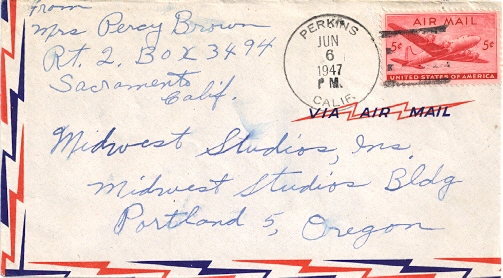 From
Mrs Percy Brown
Rt. 2, Box 3494
Sacramento
Calif.
PERKINS
JUN
6
1947
P M.
CALIF.
AIR MAIL
5¢ 5¢
UNITED STATES OF AMERICA
VIA AIR MAIL
Midwest Studios, Inc.
Midwest Studios Bldg
Portland 5, Oregon